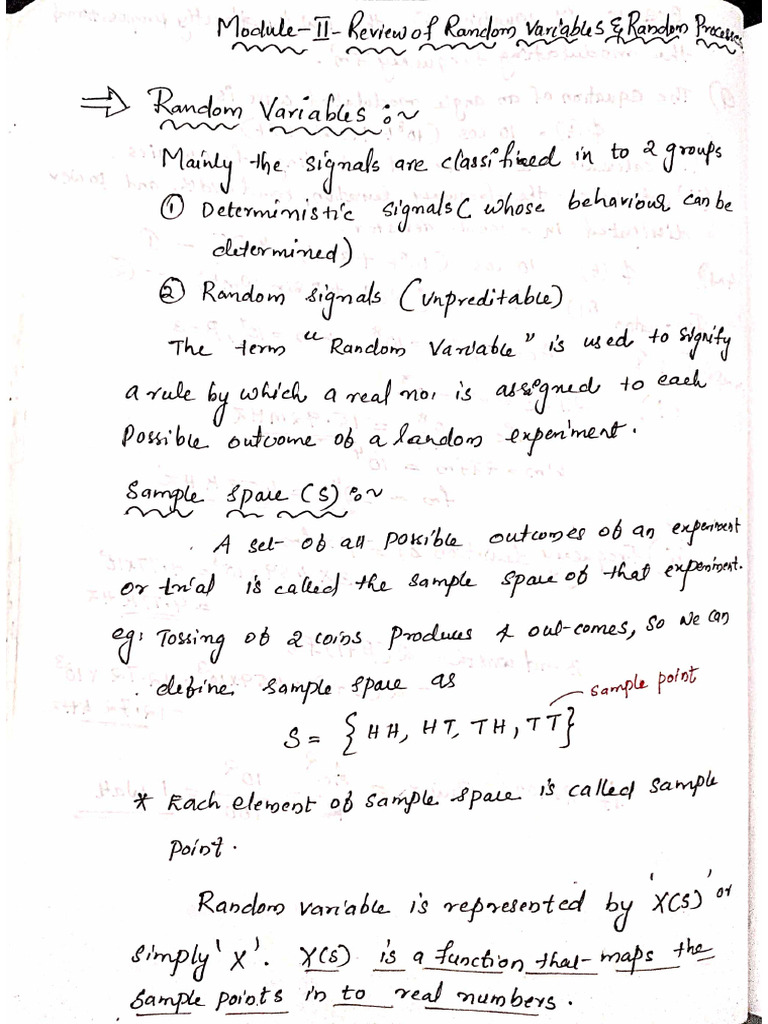 Module-II-Review of Random Variables & Random Processes
⇒ Random Variables :~
Mainly the signals are classified in to 2 groups
① Deterministic signals ( whose behaviour can be
determined)
② Random signals (unpreditable)
The term "Random Variable" is used to signify
a rule by which a real no. is assigned to each
Possible outcome of a random experiment.
Sample Space (S) :~
A set of all possible outcomes of an experiment
or trial is called the sample space of that experiment.
eg: Tossing of 2 coins produces 4 out-comes, so we can
define sample space as
sample point
S = {HH, HT, TH, TT}
* Each element of sample space is called sample
point.
Random variable is represented by 'X(S)' or
simply 'X'. X(S) is a function that maps the
sample points in to real numbers.